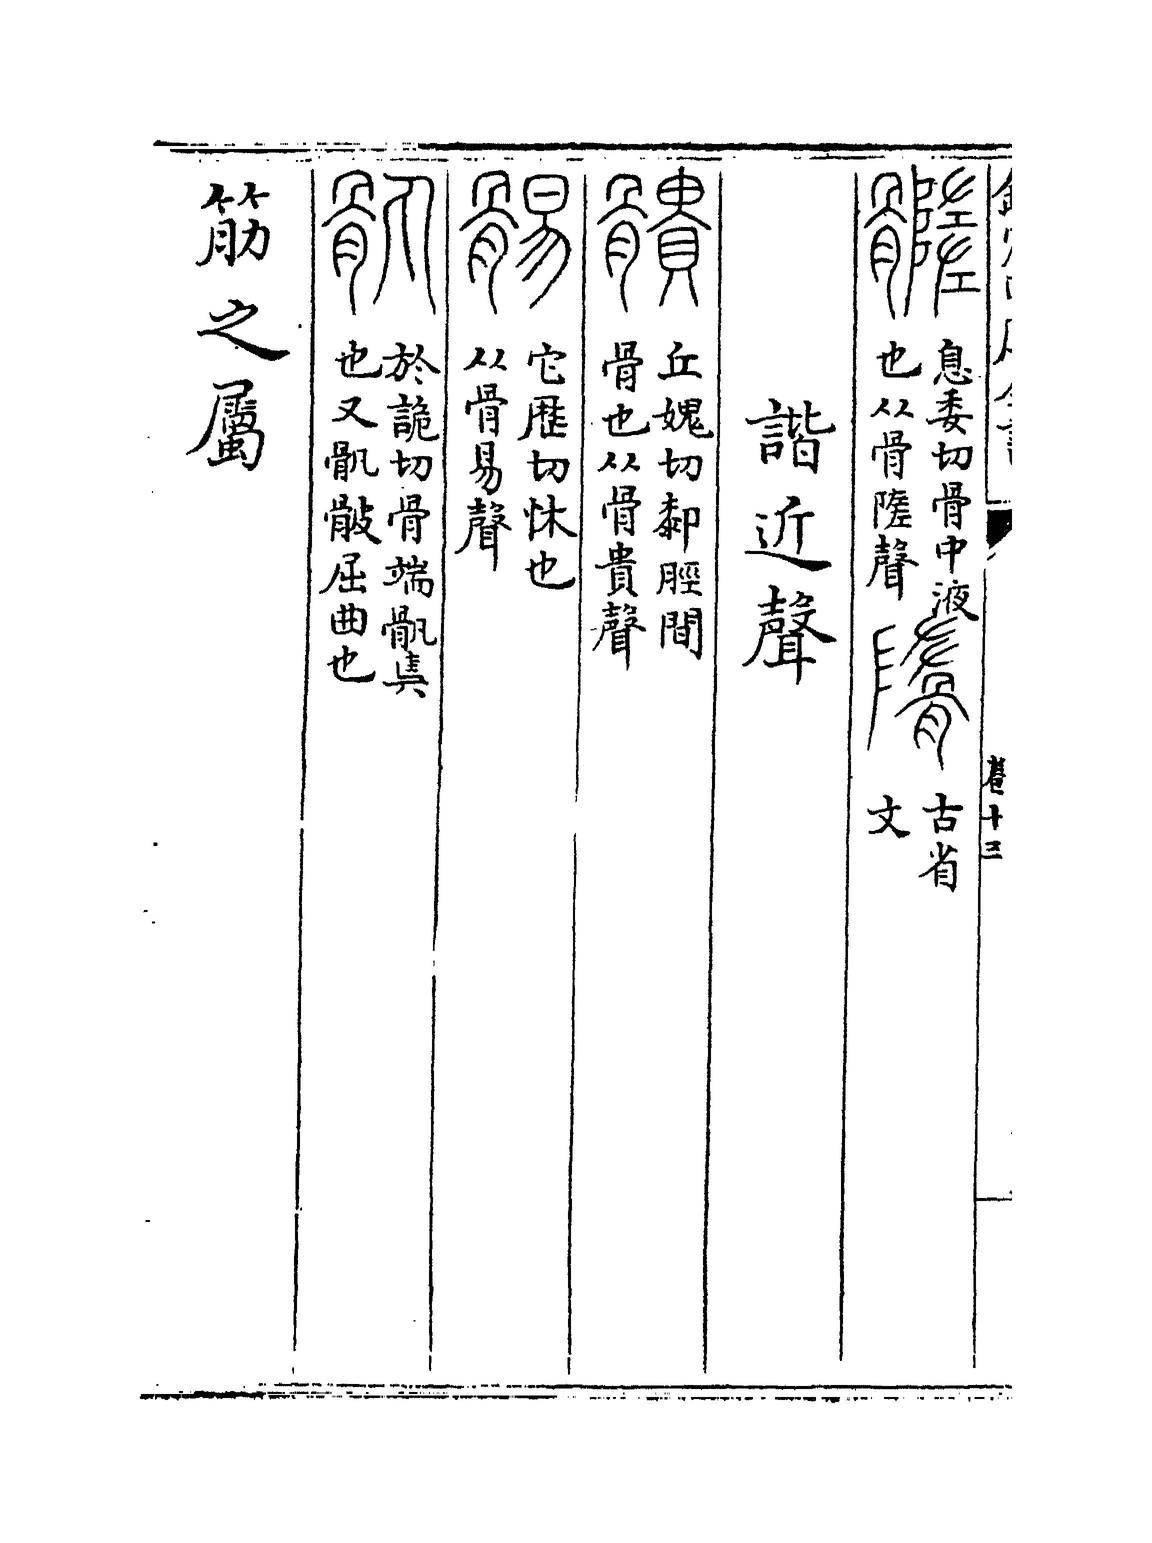 欽定四庫全書 卷十三
息委切骨中液也从骨隓聲 古省文
諧近聲
𩪋 丘媿切厀脛間骨也从骨貴聲
䯜 它歷切怵也从骨易聲
骩 於詭切骨端骩奊也又骩骳屈曲也
筋之屬